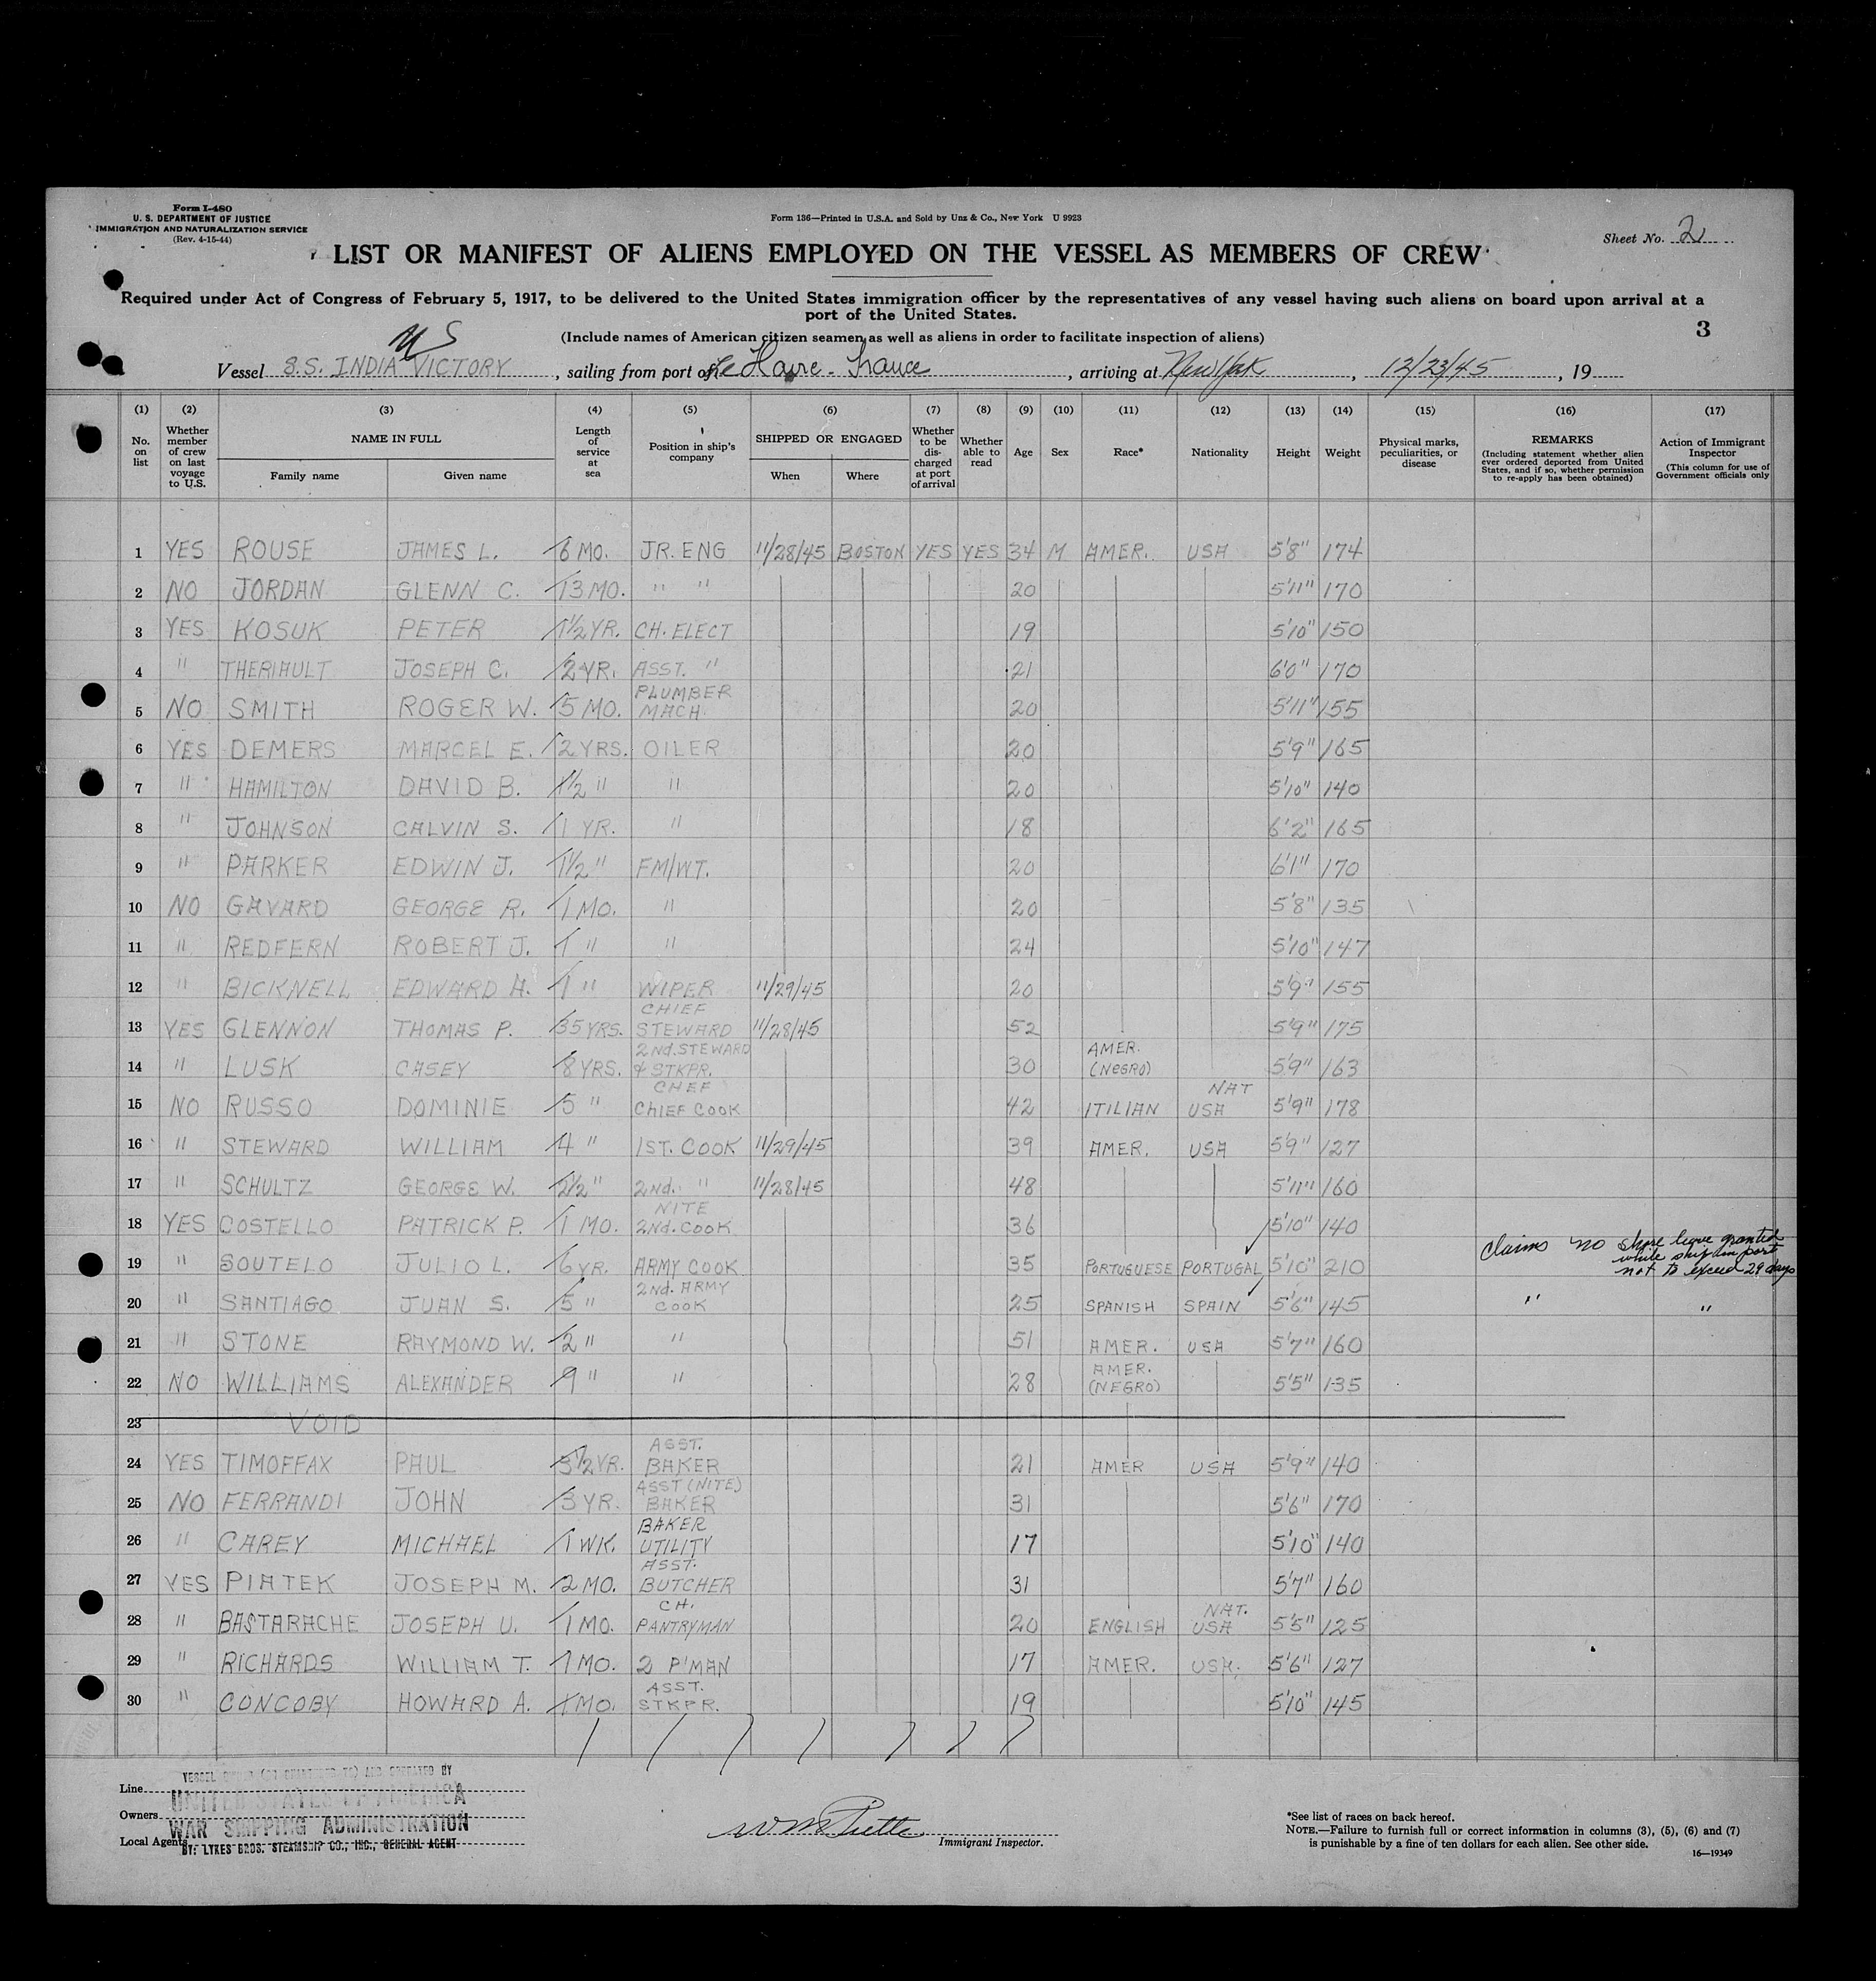 Form I-480
U. S. DEPARTMENT OF JUSTICE
IMMIGRATION AND NATURALIZATION SERVICE
(Rev. 4-15-44)
Form 136—Printed in U.S.A. and Sold by Unz & Co., New York U 9923
Sheet No. 2
LIST OR MANIFEST OF ALIENS EMPLOYED ON THE VESSEL AS MEMBERS OF CREW
Required under Act of Congress of February 5, 1917, to be delivered to the United States immigration officer by the representatives of any vessel having such aliens on board upon arrival at a
port of the United States.
(Include names of American citizen seamen as well as aliens in order to facilitate inspection of aliens)
3
US
Vessel S.S. INDIA VICTORY, sailing from port of Le Havre - France, arriving at New York, 12/23/45, 19
(1) No. on list (2) Whether member of crew on last voyage to U.S. (3) NAME IN FULL Family name Given name (4) Length of service at sea (5) Position in ship's company (6) SHIPPED OR ENGAGED When Where (7) Whether to be discharged at port of arrival (8) Whether able to read (9) Age (10) Sex (11) Race* (12) Nationality (13) Height (14) Weight (15) Physical marks, peculiarities, or disease (16) REMARKS (Including statement whether alien ever ordered deported from United States, and if so, whether permission to re-apply has been obtained) (17) Action of Immigrant Inspector (This column for use of Government officials only
1 YES ROUSE JAMES L. 6 MO. JR. ENG 11/28/45 BOSTON YES YES 34 M AMER. USA 5'8" 174
2 NO JORDAN GLENN C. 13 MO. " " 20 5'11" 170
3 YES KOSUK PETER 1 1/2 YR. CH. ELECT 19 5'10" 150
4 " THERIAULT JOSEPH C. 2 YR. ASST. " 21 6'0" 170
5 NO SMITH ROGER W. 5 MO. PLUMBER MACH. 20 5'11" 155
6 YES DEMERS MARCEL E. 2 YRS. OILER 20 5'9" 165
7 " HAMILTON DAVID B. 1 1/2 " " 20 5'10" 140
8 " JOHNSON CALVIN S. 1 YR. " 18 6'2" 165
9 " PARKER EDWIN J. 1 1/2 " FM/WT. 20 6'1" 170
10 NO GAVARD GEORGE R. 1 MO. " 20 5'8" 135
11 " REDFERN ROBERT J. 1 " " 24 5'10" 147
12 " BICKNELL EDWARD H. 1 " WIPER 11/29/45 20 5'9" 155
13 YES GLENNON THOMAS P. 35 YRS. CHIEF STEWARD 11/28/45 52 5'9" 175
14 " LUSK CASEY 8 YRS. 2nd. STEWARD & STKPR. 30 AMER. (NEGRO) 5'9" 163
15 NO RUSSO DOMINIE 5 " CHEF CHIEF COOK 42 ITILIAN NAT USA 5'9" 178
16 " STEWARD WILLIAM 4 " 1ST. COOK 11/29/45 39 AMER. USA 5'9" 127
17 " SCHULTZ GEORGE W. 2 1/2 " 2nd. " 11/28/45 48 5'11" 160
18 YES COSTELLO PATRICK P. 1 MO. NITE 2nd. COOK 36 5'10" 140
19 " SOUTELO JULIO L. 6 YR. ARMY COOK 35 PORTUGUESE PORTUGAL 5'10" 210 Claims no shore leave granted while ship in port not to exceed 29 days
20 " SANTIAGO JUAN S. 5 " 2nd. ARMY COOK 25 SPANISH SPAIN 5'6" 145 " "
21 " STONE RAYMOND W. 2 " " 51 AMER. USA 5'7" 160
22 NO WILLIAMS ALEXANDER 9 " " 28 AMER. (NEGRO) 5'5" 135
23 VOID
24 YES TIMOFFAX PAUL 3 1/2 YR. ASST. BAKER 21 AMER USA 5'9" 140
25 NO FERRANDI JOHN 3 YR. ASST (NITE) BAKER 31 5'6" 170
26 " CAREY MICHAEL 1 WK. BAKER UTILITY 17 5'10" 140
27 YES PIATEK JOSEPH M. 2 MO. ASST. BUTCHER 31 5'7" 160
28 " BASTARACHE JOSEPH U. 1 MO. CH. PANTRYMAN 20 ENGLISH NAT. USA 5'5" 125
29 " RICHARDS WILLIAM T. 1 MO. 2 P'MAN 17 AMER. USA. 5'6" 127
30 " CONCOBY HOWARD A. 1 MO. ASST. STKPR. 19 5'10" 145
VESSEL OWNED (OR CHARTERED TO) AND OPERATED BY
Line
UNITED STATES OF AMERICA
Owners
WAR SHIPPING ADMINISTRATION
Local Agents
BY: LYKES BROS. STEAMSHIP CO., INC., GENERAL AGENT
Immigrant Inspector.
*See list of races on back hereof.
NOTE.—Failure to furnish full or correct information in columns (3), (5), (6) and (7)
is punishable by a fine of ten dollars for each alien. See other side.
16—19349